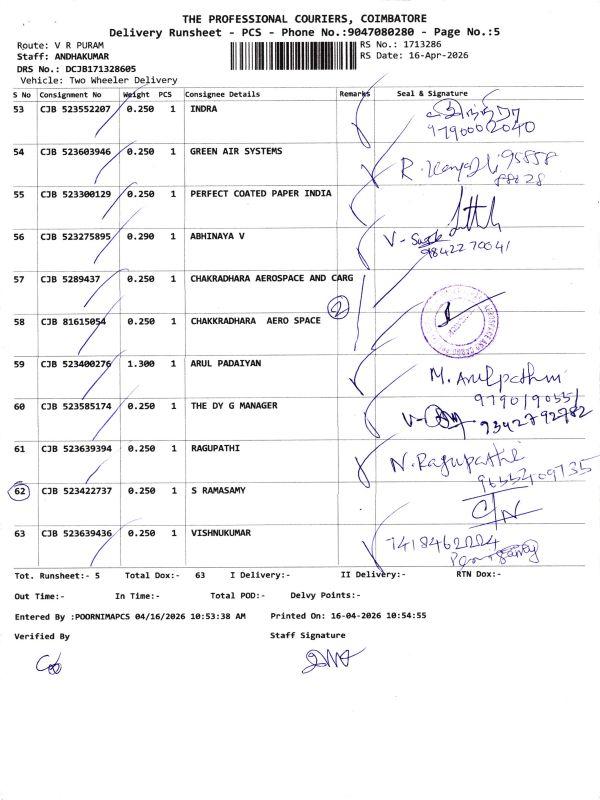 THE PROFESSIONAL COURIERS, COIMBATORE
Delivery Runsheet - PCS - Phone No.:9047080280 - Page No.:5
Route: V R PURAM
Staff: ANDHAKUMAR
DRS No.: DCJB171328605
Vehicle: Two Wheeler Delivery
RS No.: 1713286
RS Date: 16-Apr-2026
S No Consignment No Weight PCS Consignee Details Remarks Seal & Signature
53 CJB 523552207 0.250 1 INDRA
9790002040
54 CJB 523603946 0.250 1 GREEN AIR SYSTEMS
95858
88828
55 CJB 523300129 0.250 1 PERFECT COATED PAPER INDIA
56 CJB 523275895 0.290 1 ABHINAYA V
9842270041
57 CJB 5289437 0.250 1 CHAKRADHARA AEROSPACE AND CARG
2
58 CJB 81615054 0.250 1 CHAKKRADHARA AERO SPACE
59 CJB 523400276 1.300 1 ARUL PADAIYAN
M. Arulpathni
9790190551
60 CJB 523585174 0.250 1 THE DY G MANAGER
9342792782
61 CJB 523639394 0.250 1 RAGUPATHI
N. Ragupathi
9655409735
62 CJB 523422737 0.250 1 S RAMASAMY
C/N
63 CJB 523639436 0.250 1 VISHNUKUMAR
7418462224
Tot. Runsheet:- 5 Total Dox:- 63 I Delivery:- II Delivery:- RTN Dox:-
Out Time:- In Time:- Total POD:- Delvy Points:-
Entered By :POORNIMAPCS 04/16/2026 10:53:38 AM Printed On: 16-04-2026 10:54:55
Verified By Staff Signature